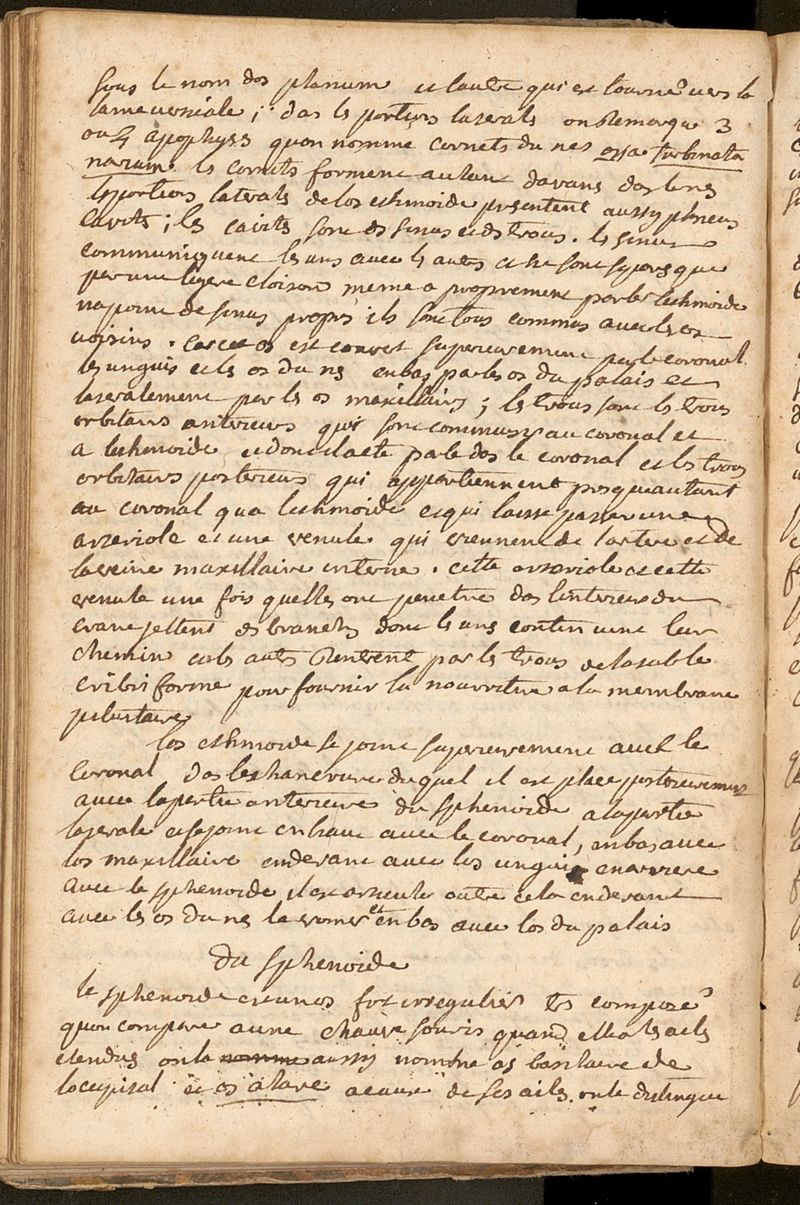 sous le nom dos planum et lautre qui est tourné vers la
lame verticale; das ls portions laterals on Remarque 3
ou 4 apophyss quon nomme cornets du nes ossa turbinata
narium. ls cornets forment autant davans das le nes
ls portions laterals de los ethmoide presentent aussy plusieurs
cavits; ls cavits sont ds sinus et ds trous. ls sinus
communiquent ls uns avec ls autrs et ne sont separes que
par une legere cloison meme a proprement parler lethmoide
na point de sinus propres ils sont tous communs avec ls os
voisins. car cet os est couvert superieurement par le coronal
ls unguis et ls os du ns en bas par ls os du palais et
lateralement par ls os maxillairs; ls trous sont ls trous
orbitairs anterieurs qui sont communs au coronal et
a lethmoide et dont la ete parle das le coronal et ls trous
orbitairs posterieurs qui appartiennent presque autant
au coronal qua lethmoide et qui laisse passer une
arteriole et une venule qui viennent de lartere et de
la veine maxillaire interne. cette arteriole et cette
venule une fois quelles ont penetre das linterieur du
crane jettent ds branchs dont ls uns continuent leur
chemin et ls autrs Rentrent par ls trous de la table
cribriforme pour fournir la nourriture a la membrane
pituitaire
los ethmoide se joint superieurement avec le
coronal das lechancrure duquel il est place posterieurement
avec la partie anterieure du sphenoide a la partie
laterale il se joint en haut avec le coronal, en bas avec
los maxillaire en devant avec los unguis en arriere
avec le sphenoide il est articulé outre cela en devant
avec ls os du ns le vomer et en bas avec los du palais
du sphenoide
le sphenoide est un os fort irregulier tres composé
quon compare a une chauve souris quand elle a ls ails
etendus on la nomme aussy nomme os basilaire de
loccipital et os alare a cause de ses ails. on le distingue